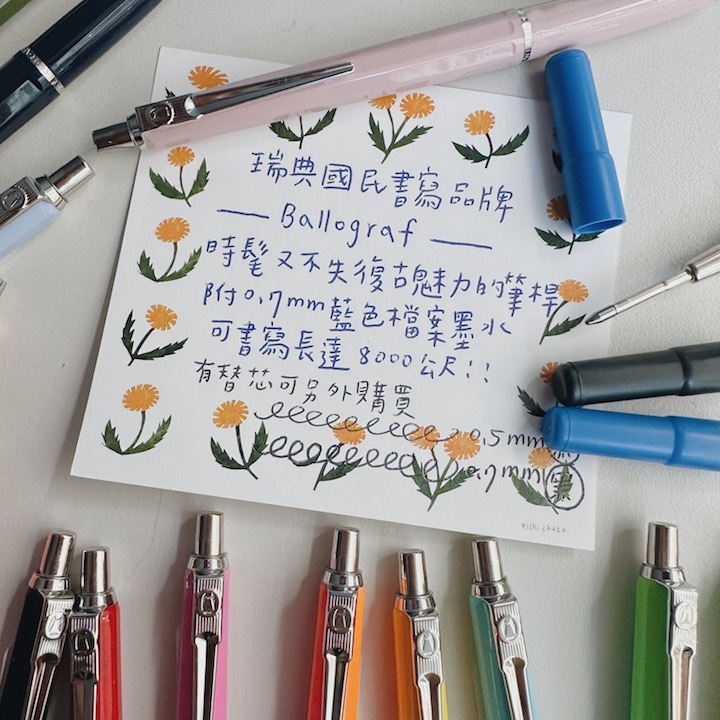 瑞典國民書寫品牌
— Ballograf —
時髦又不失復古魅力的筆桿
附0.7mm藍色檔案墨水
可書寫長達8000公尺!!
有替芯可另外購買
0.5mm
0.7mm 黑